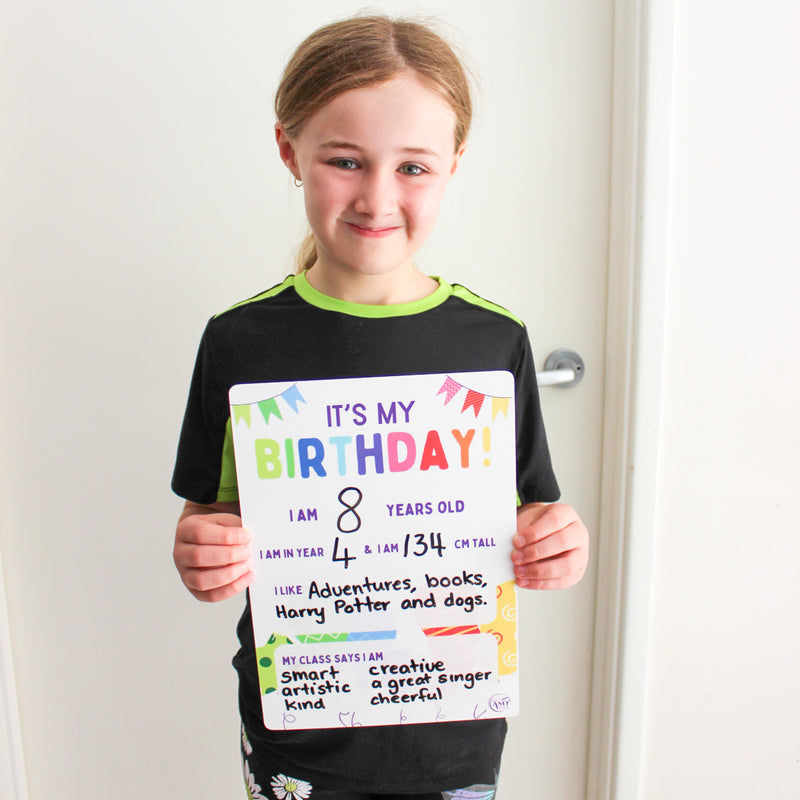 IT'S MY
BIRTHDAY!
I AM 8 YEARS OLD
I AM IN YEAR 4 & I AM 134 CM TALL
I LIKE Adventures, books,
Harry Potter and dogs.
MY CLASS SAYS I AM
smart creative
artistic a great singer
kind cheerful
AMY